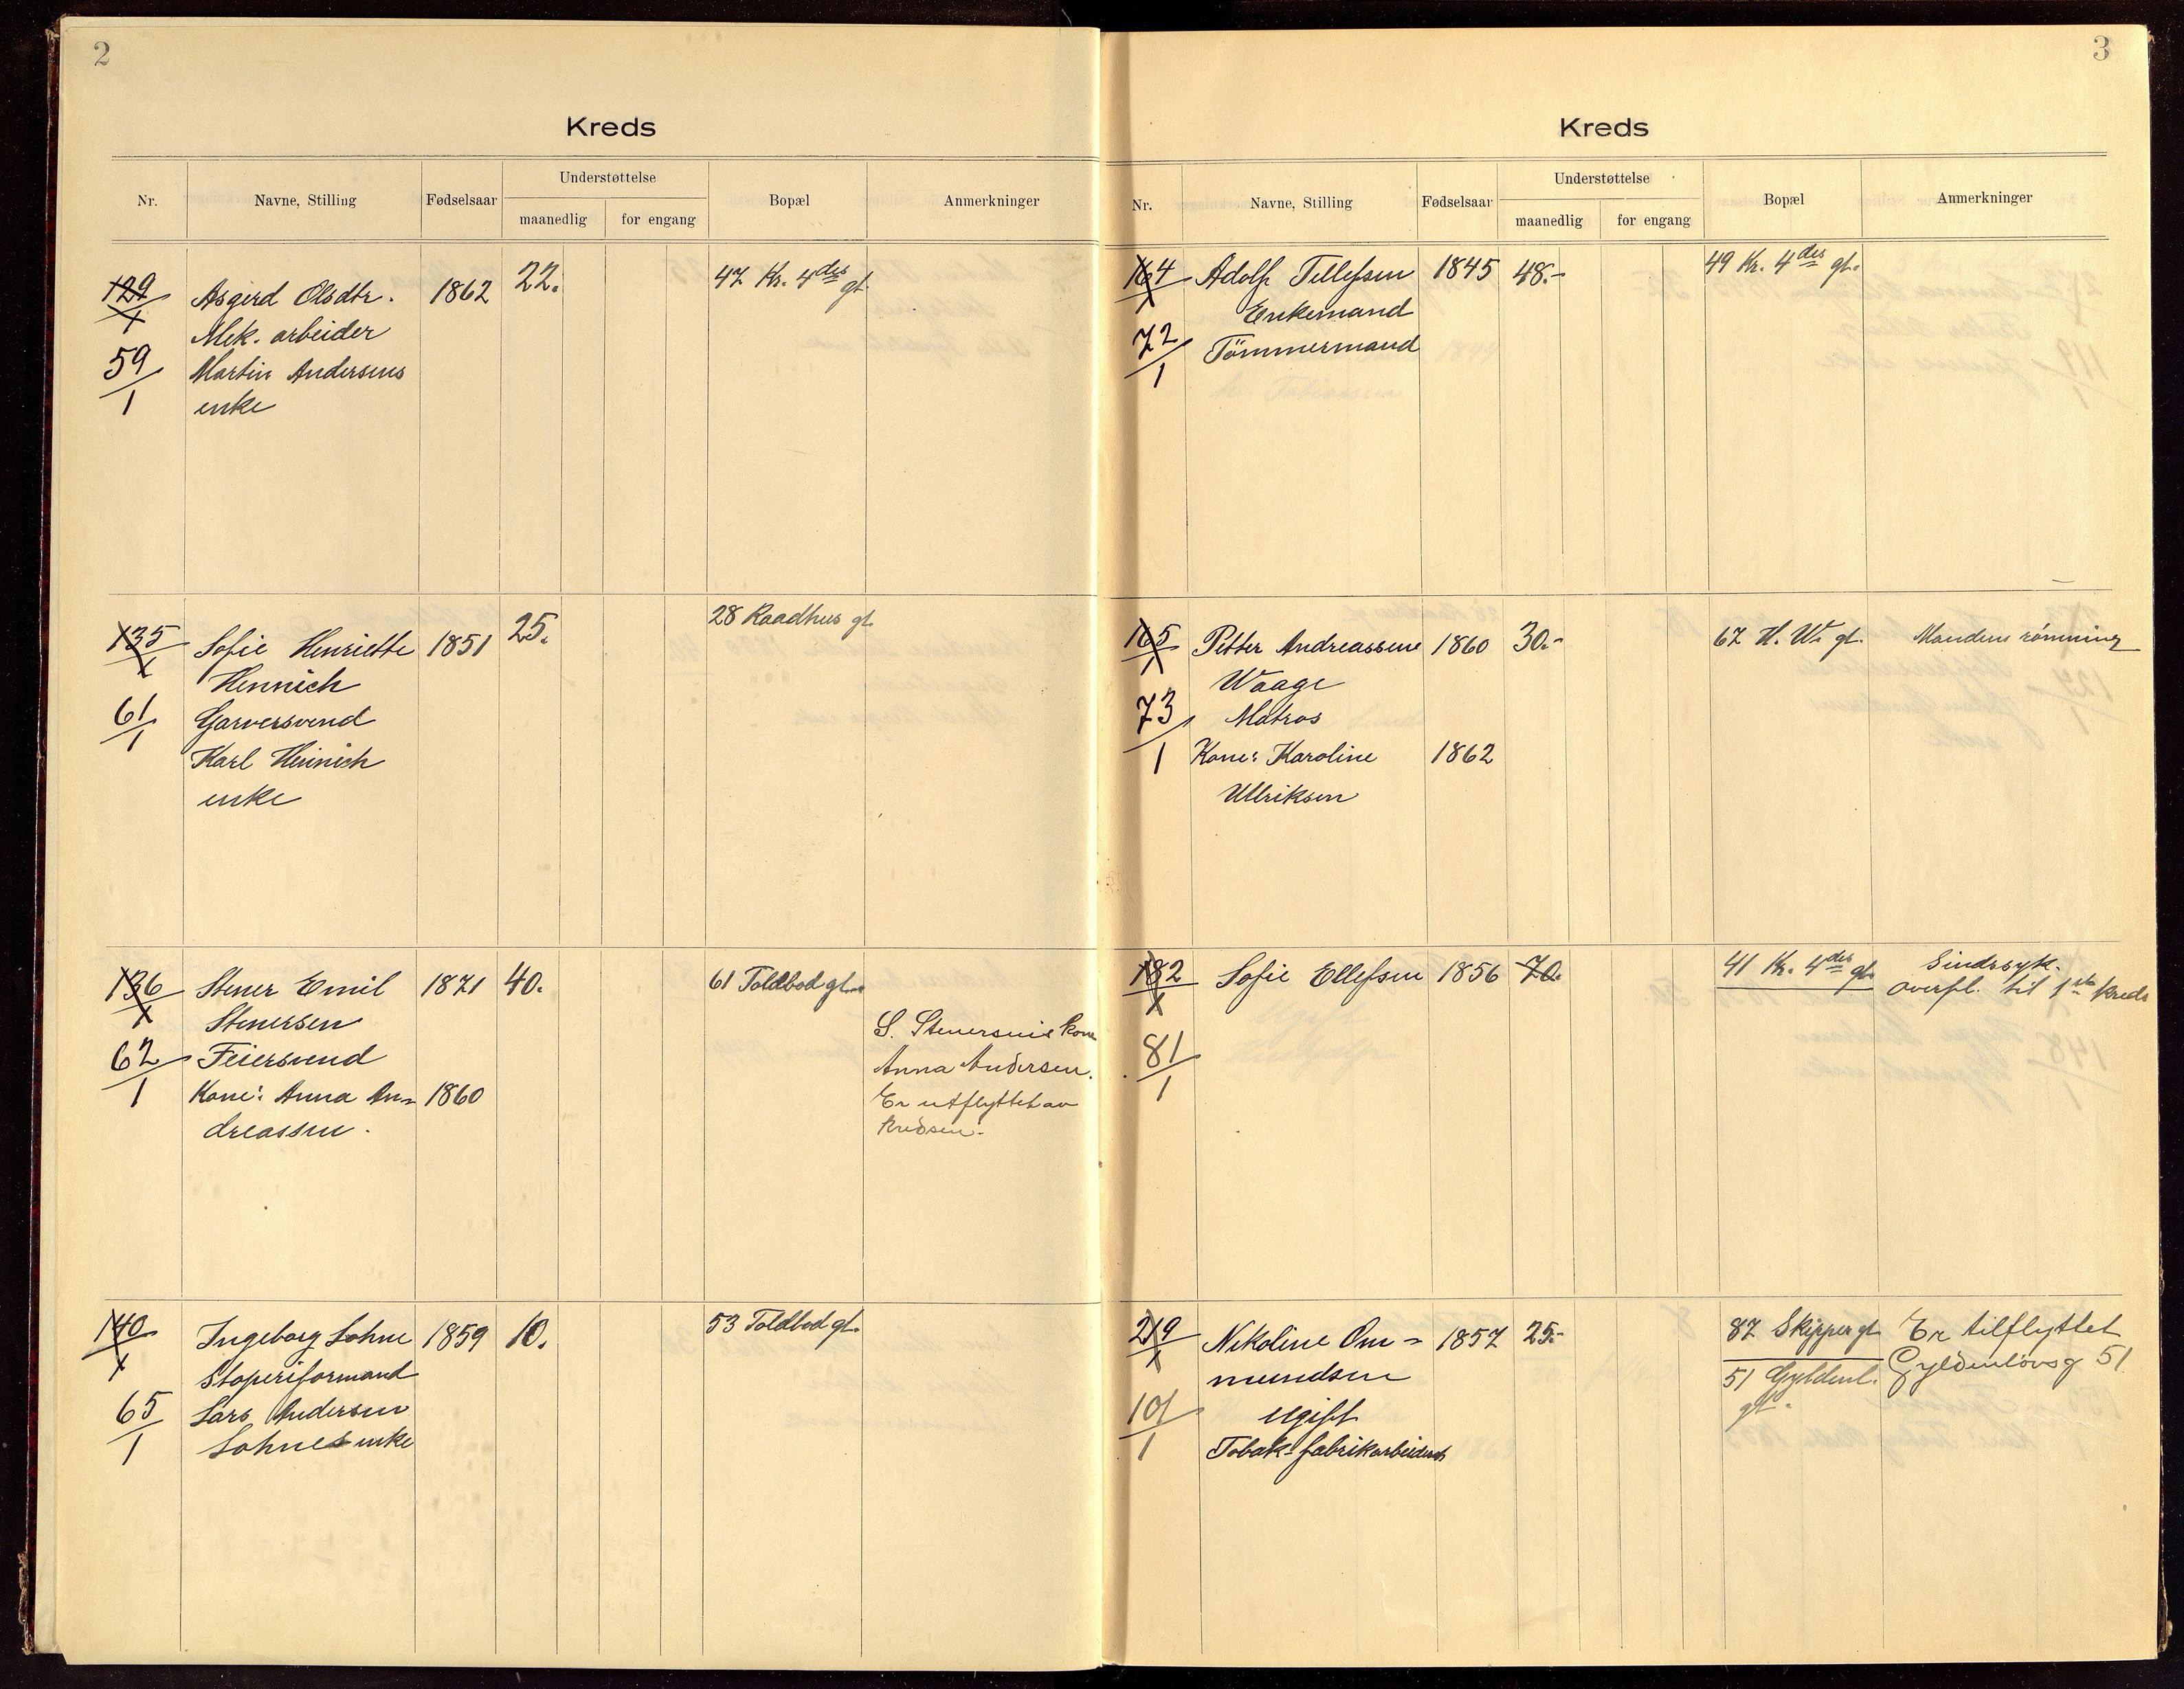 2
Kreds
Nr.
Navne, Stilling
Fødselsaar
Understøttelse
maanedlig
for engang
Bopæl
Anmerkninger
129/1 Asgerd Olsdtr. 1862 22. 47 Kr. 4des gt.
Mek. arbeider
59/1 Martin Andersens
enke
135/1 Sofie Henriette 1851 25. 28 Raadhus gt.
Hennich
61/1 Garversvend
Karl Heinich
enke
136/1 Stener Emil 1871 40. 61 Toldbod gt.
Stenersen
62/1 Feiersvend
Kone: Anna An- 1860
dreassen.
S. Stenersens kone
Anna Andersen.
Er utflyttet av
kredsen.
140/1 Ingeborg Lohne 1859 10. 53 Toldbod gt.
Støperiformand
65/1 Lars Andersen
Lohnes enke
3
Kreds
Nr.
Navne, Stilling
Fødselsaar
Understøttelse
maanedlig
for engang
Bopæl
Anmerkninger
164/1 Adolf Tellefsen 1845 48.- 49 Kr. 4des gt.
Enkemand
72/1 Tömmermand
165/1 Petter Andreassen 1860 30.- 67 H. W. gt. Mandens römning
Waage
73/1 Matros
Kone: Karoline 1862
Ullriksen
182/1 Sofie Ellefsen 1856 70. 41 Kr. 4des gt. Sindssyk.
overfl. til 1ste kreds
81/1
219/1 Nikoline Om- 1857 25.- 87 Skipper gt. Er tilflyttet
mundsen 51 Gyldenl. gt. Gyldenlövsg 51
101/1 Ugift
Tobak-fabrikarbeidersk